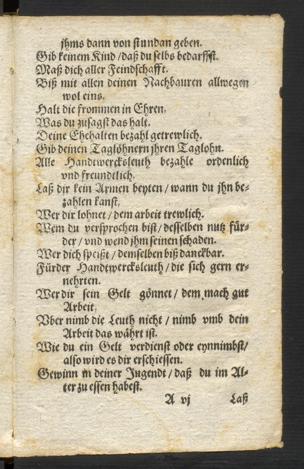 jhms dann von stundan geben.
Gib keinem Kind / daß du selbs bedarffst.
Maß dich aller Feindschafft.
Biß mit allen deinen Nachbauren allwegen
wol eins.
Halt die frommen in Ehren.
Was du zusagst das halt.
Deine Ehehalten bezahl getrewlich.
Gib deinen Taglöhnern jhren Taglohn.
Alle Handtwercksleuth bezahle ordenlich
vnd freundtlich.
Laß dir kein Armen beyten / wann du jhn be-
zahlen kanst.
Wer dir lohnet / dem arbeit trewlich.
Wem du versprochen bist / desselben nutz für-
der / vnd wend jhm seinen schaden.
Wer dich speißt / demselben biß danckbar.
Fürder Handtwercksleuth / die sich gern er-
nehrten.
Wer dir sein Gelt gönnet / dem mach gut
Arbeit.
Vber nimb die Leuth nicht / nimb vmb dein
Arbeit das währt ist.
Wie du ein Gelt verdienst oder eynnimbst /
also wird es dir erschiessen.
Gewinn in deiner Jugendt / daß du im Al-
ter zu essen habest.
A vj Laß